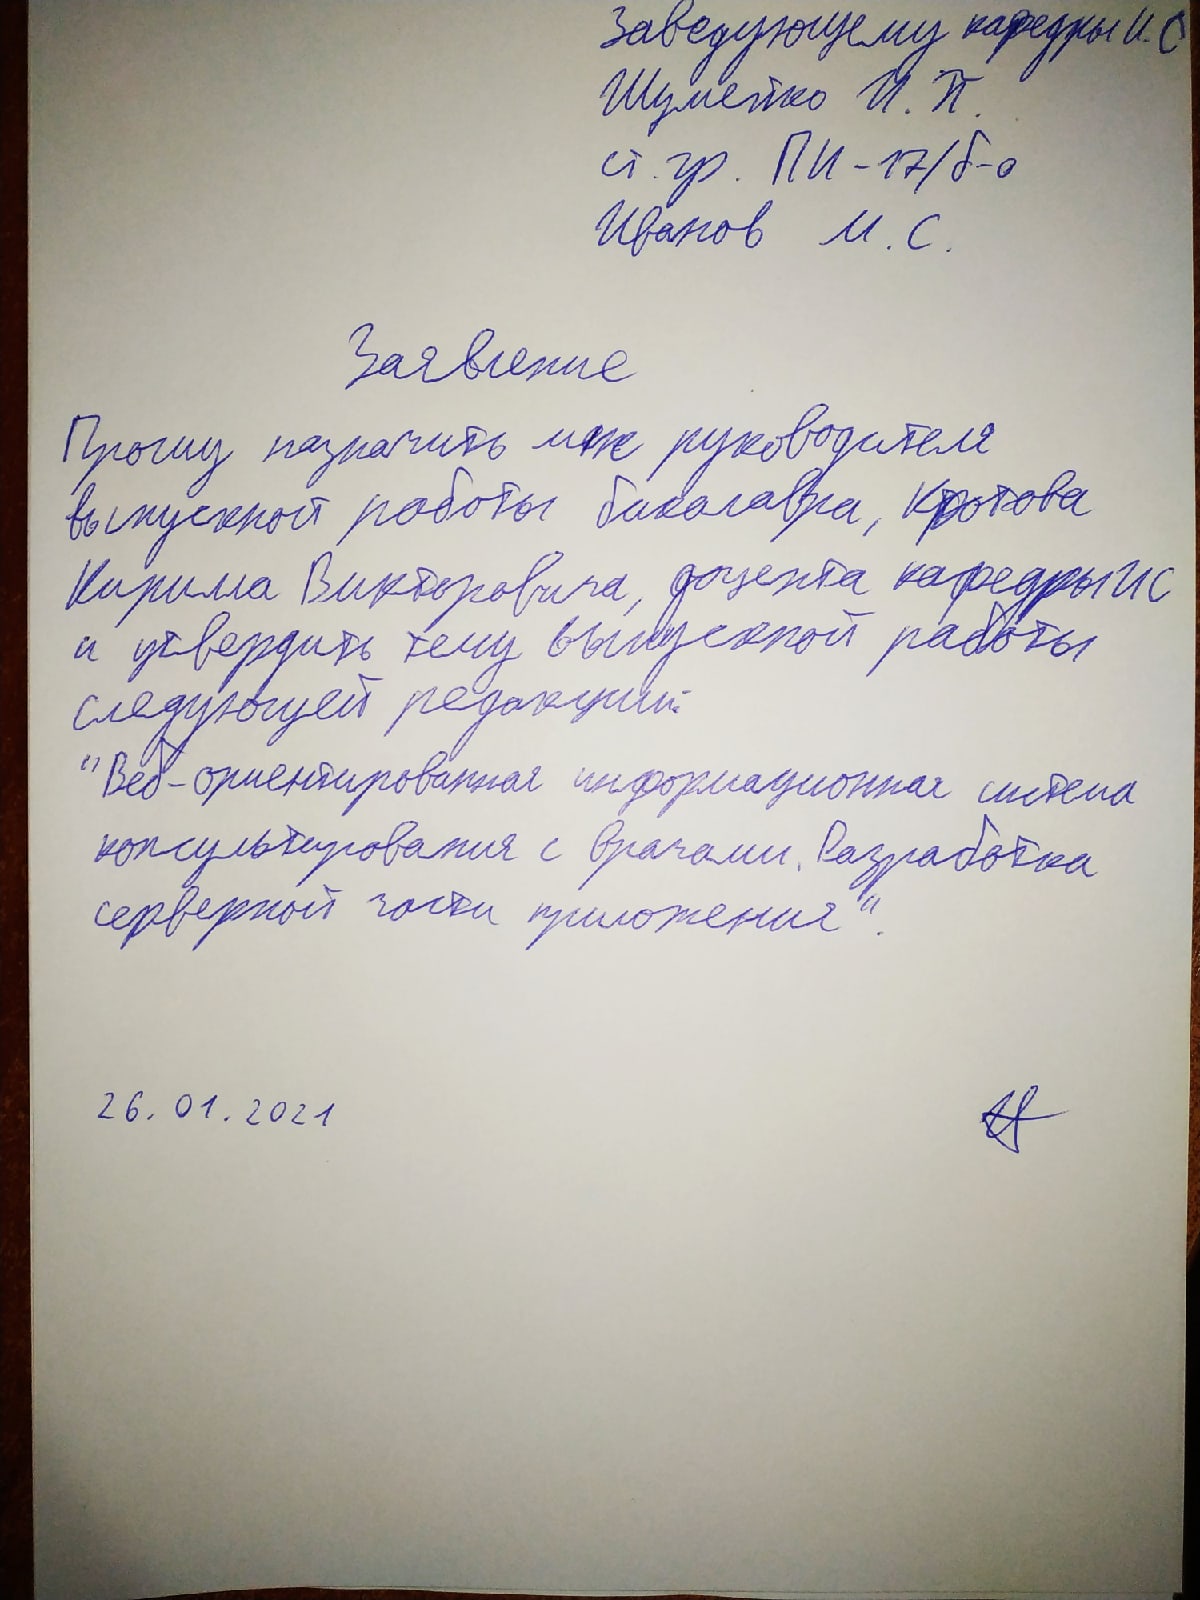 Заведующему кафедры И.С
Шумейко И.П.
ст. гр. ПИ-17/б-о
Иванов М.С.
Заявление
Прошу назначить мне руководителя
выпускной работы бакалавра, Кротова
Кирилла Викторовича, доцента кафедры ИС
и утвердить тему выпускной работы
следующей редакции:
"Веб-ориентированная информационная система
консультирования с врачами. Разработка
серверной части приложения".
26.01.2021